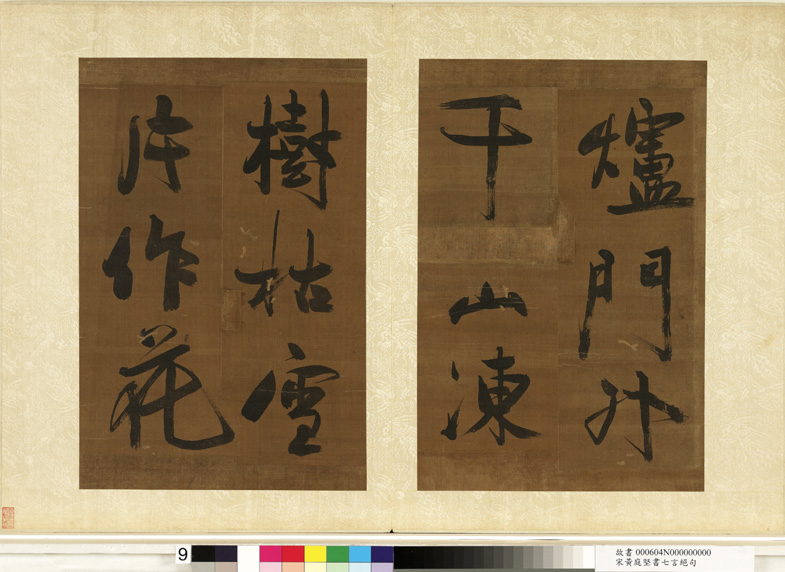 爐門外
千山凍
樹枯雪
片作花
9
故書 000604N000000000
宋黃庭堅書七言絕句